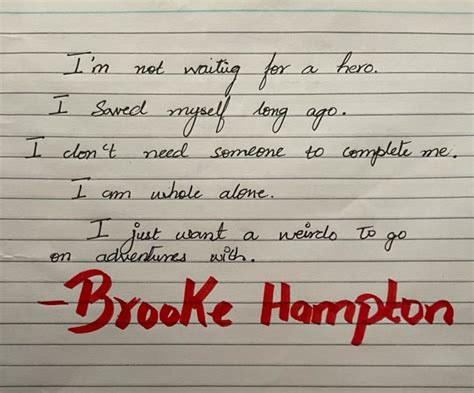 I'm not waiting for a hero.
I saved myself long ago.
I don't need someone to complete me.
I am whole alone.
I just want a weirdo to go
on adventures with.
-Brooke Hampton